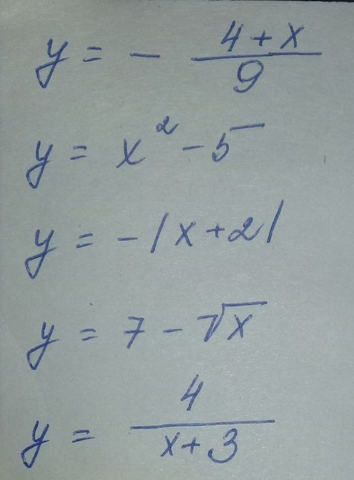 y = - (4+x)/9
y = x² - 5
y = -|x+2|
y = 7 - √x
y = 4/(x+3)